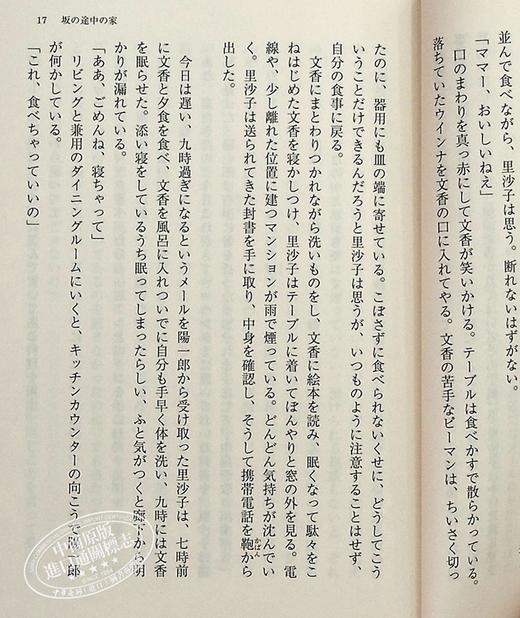 17 坂の途中の家
並んで食べながら、里沙子は思う。断れないはずがない。
「ママー、おいしいねえ」
口のまわりを真っ赤にして文香が笑いかける。テーブルは食べかすで散らかっている。
落ちていたウインナを文香の口に入れてやる。文香の苦手なピーマンは、ちいさく切っ
たのに、器用にも皿の端に寄せている。こぼさずに食べられないくせに、どうしてこう
いうことだけできるんだろうと里沙子は思うが、いつものように注意することはせず、
自分の食事に戻る。
文香にまとわりつかれながら洗いものをし、文香に絵本を読み、眠くなって駄々をこ
ねはじめた文香を寝かしつけ、里沙子はテーブルに着いてぼんやりと窓の外を見る。電
線や、少し離れた位置に建つマンションが雨で煙っている。どんどん気持ちが沈んでい
く。里沙子は送られてきた封書を手に取り、中身を確認し、そうして携帯電話を鞄から
かばん
出した。
今日は遅い、九時過ぎになるというメールを陽一郎から受け取った里沙子は、七時前
に文香と夕食を食べ、文香を風呂に入れついでに自分も手早く体を洗い、九時には文香
を眠らせた。添い寝をしているうち眠ってしまったらしい、ふと気がつくと廊下から明
かりが漏れている。
「ああ、ごめんね、寝ちゃって」
リビングと兼用のダイニングルームにいくと、キッチンカウンターの向こうで陽一郎
が何かしている。
「これ、食べちゃっていいの」